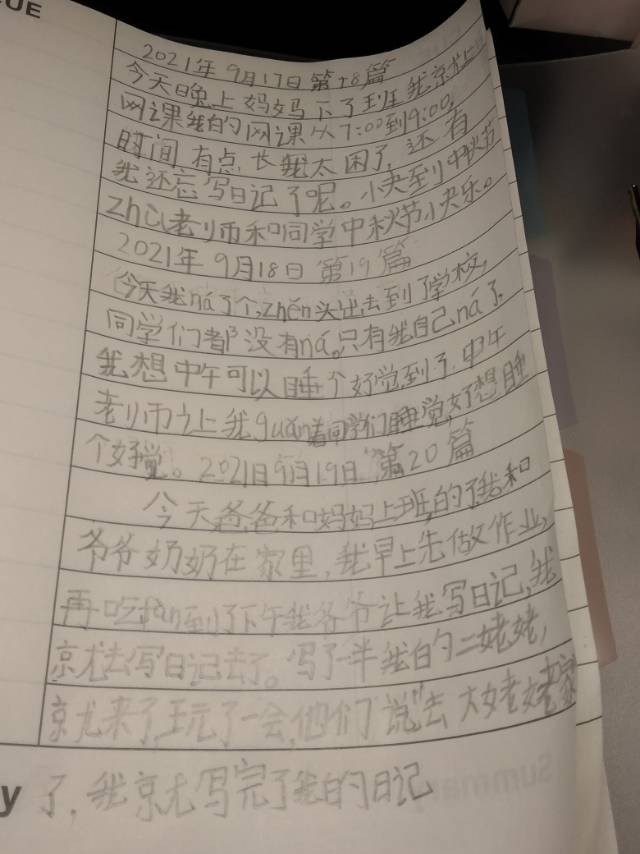 CUE
2021年9月17日第十8篇
今天晚上妈妈下了班我京尤上
网课我的网课从7:00到9:00,
时间有点长我太困了,还有
我还忘写日记了呢。小夬到中秋节
zhù老师和同学中秋节小夬乐。
2021年9月18日第19篇
今天我ná了个zhěn头出去到了学校,
同学们都没有ná,只有我自己ná了,
我想中午可以睡个好觉到了中午
老师让我guǎn着同学们睡觉,好想睡
个好觉。2021日9月19日第20篇
今天爸爸和妈妈上班的了我和
爷爷奶奶在家里,我早上先做作业,
再吃fàn到了下午我爷爷让我写日记,我
京尤去写日记去了。写了一半我的二姥姥,
京尤来了,玩了一会,他们说"去大姥姥家
y 了,我京尤写完了我的日记
Summary